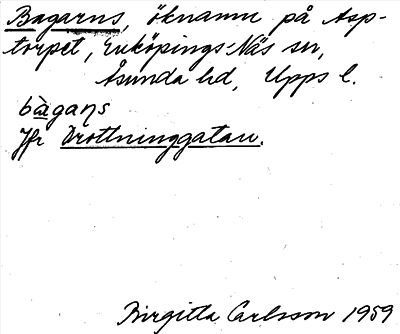 Bagarns, öknamn på Asp-
torpet, Enköpings-Näs sn,
Åsunda hd, Upps l.
bàgaɳs
Jfr Drottninggatan.
Birgitta Carlsson 1959